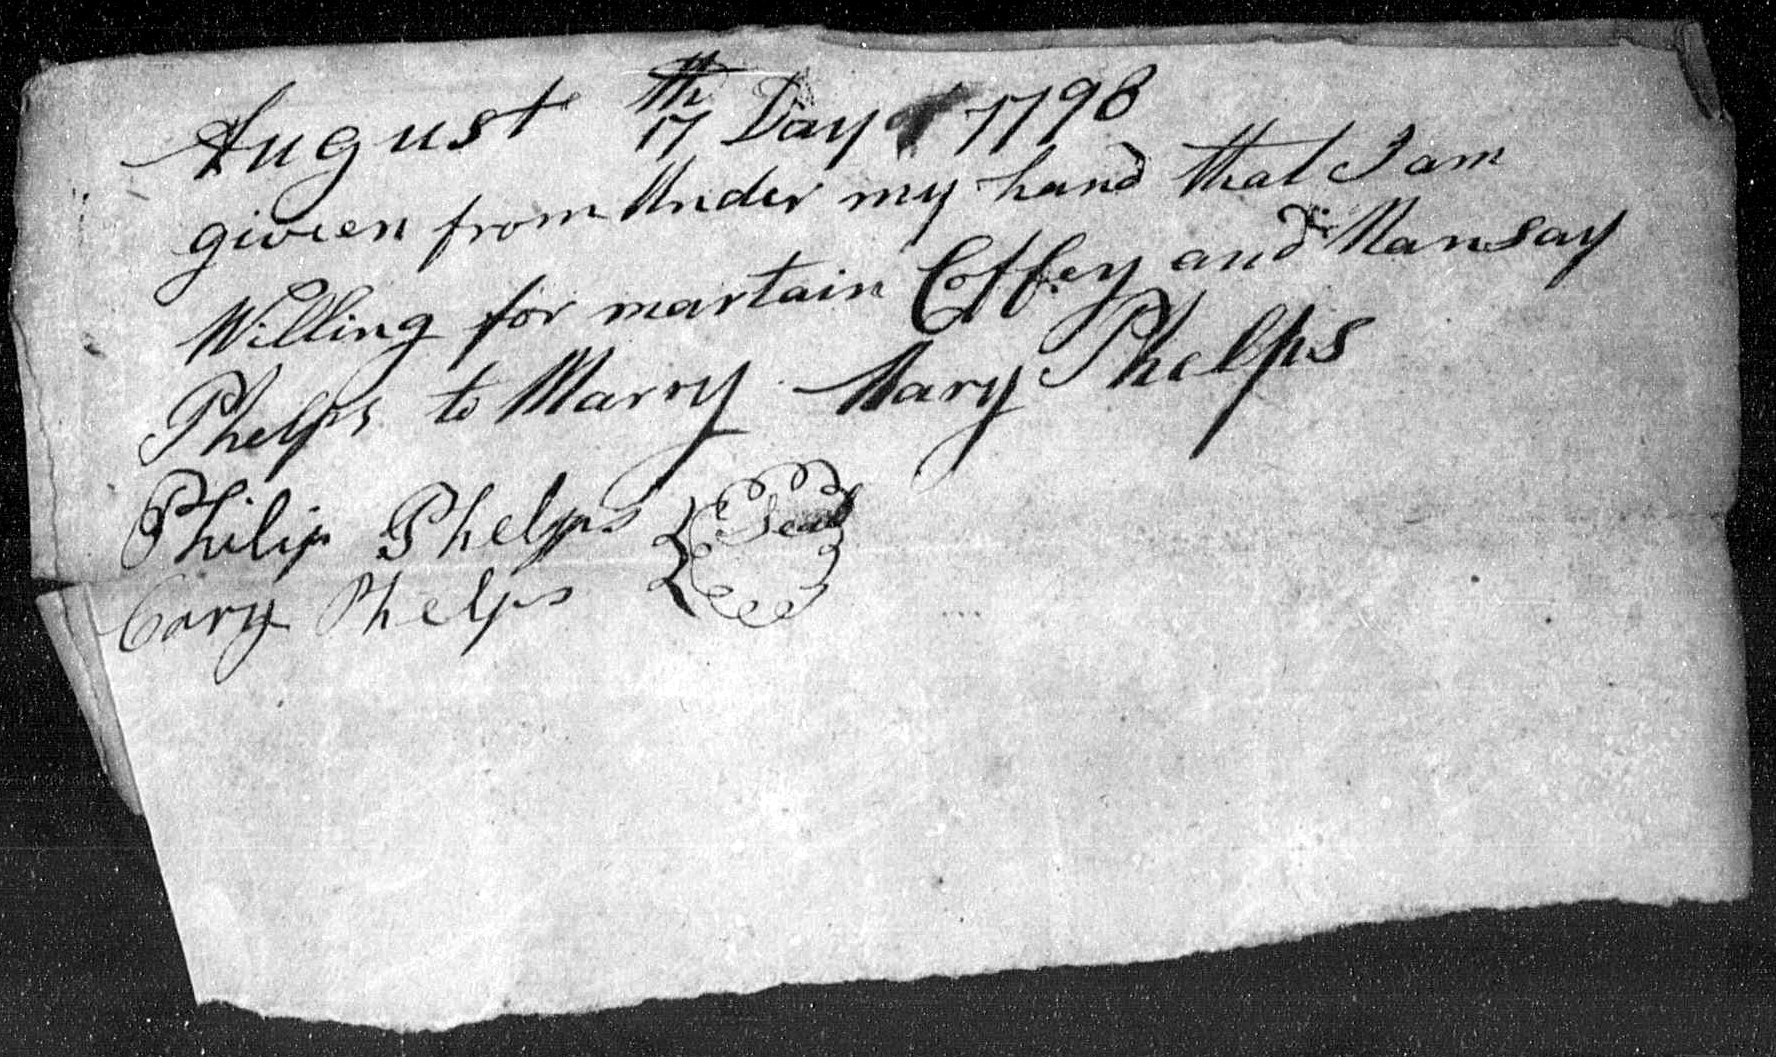 August 17th Day 1798
givien from Under my hand that I am
Willing for martain Coffey and Nansay
Phelps to Marry Mary Phelps
Philip Phelps Seal
Cary Phelps